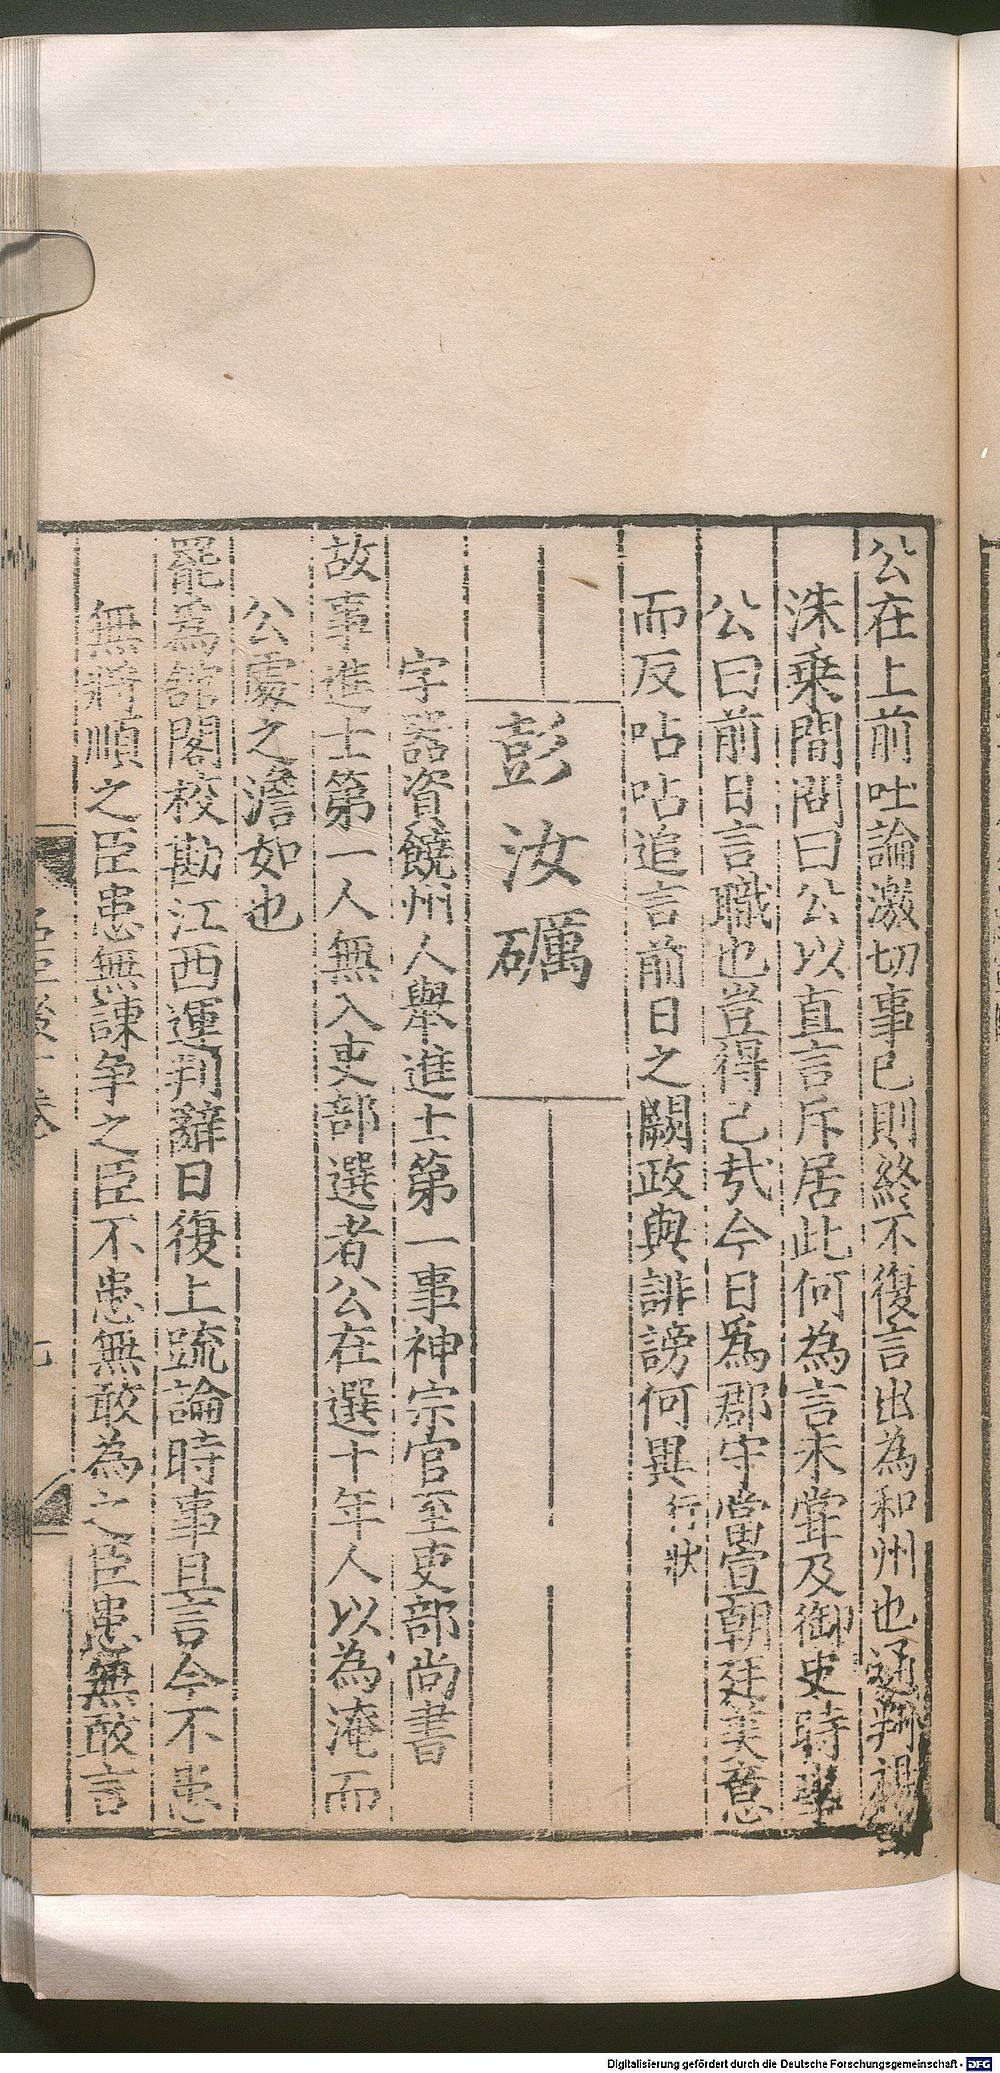 公在上前吐論激切事已則終不復言出為和州也通判楊
洙乗間問曰公以直言斥居此何為言未甞及御史時事
公曰前日言職也豈得已㢤今日為郡守當宣朝廷美意
而反呫呫追言前日之闕政與誹謗何異行狀
彭汝礪
字器資饒州人舉進士第一事神宗官至吏部尚書
故事進士第一人無入吏部選者公在選十年人以為淹而
公處之澹如也
罷為舘閣校勘江西運判辭日復上䟽論時事且言今不患
無將順之臣患無諫争之臣不患無敢為之臣患無敢言
名臣後 卷
七
Digitalisierung gefördert durch die Deutsche Forschungsgemeinschaft - DFG